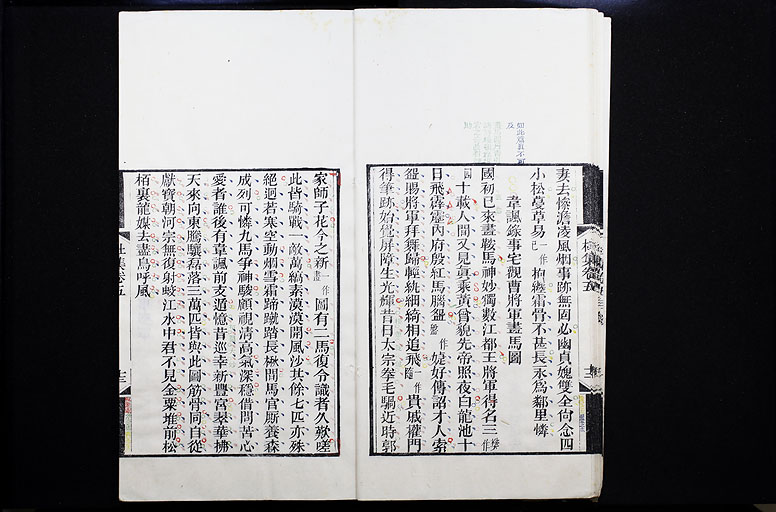 妻去慘澹凌風烟事跡無固必幽貞媿雙全尙念四
小松蔓草易已一作拘纏霜骨不甚長永爲鄰里憐
韋諷錄事宅觀曹將軍畫馬圖
國初已來畫鞍馬神妙獨數江都王將軍得名三
十載人間又見眞乘黃曾貌先帝照夜白龍池十
日飛霹靂內府殷紅馬腦盌 作 婕妤傳詔才人索
盌賜將軍拜舞歸輕紈細綺相追飛隨作 貴戚權門
得筆跡始覺屏障生光輝昔日太宗拳毛騧近時郭
家師子花今之新一作畫圖有二馬復令識者久歎嗟
此皆騎戰一敵萬縞素漠漠開風沙其餘七匹亦殊
絕迥若寒空動烟雪霜蹄蹴踏長楸間馬官厮養森
成列可憐九馬爭神駿顧視淸高氣深穩借問苦心
愛者誰後有韋諷前支遁憶昔巡幸新豐宮翠華拂
天來向東騰驤磊落三萬匹皆與此圖筋骨同自從
獻寶朝河宗無復射蛟江水中君不見金粟堆前松
栢裏龍媒去盡鳥呼風
杜集卷五
十三